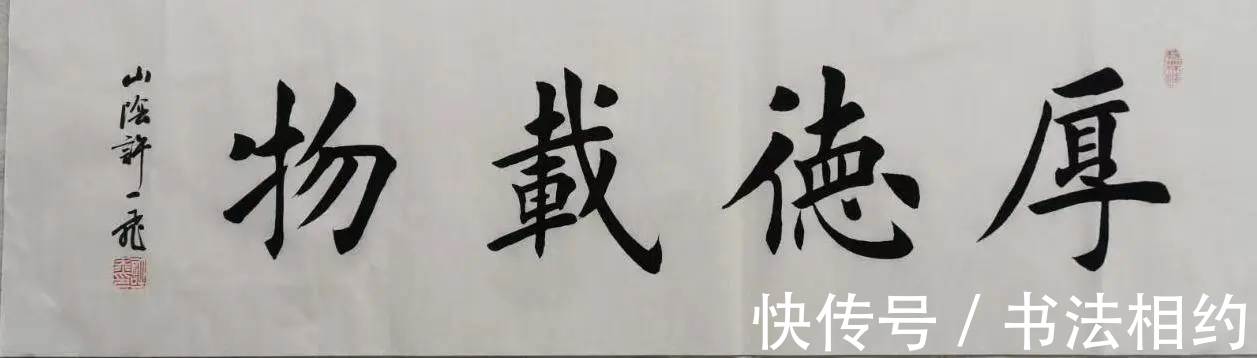 厚德載物
山陰許一飛
快传号 / 书法相约